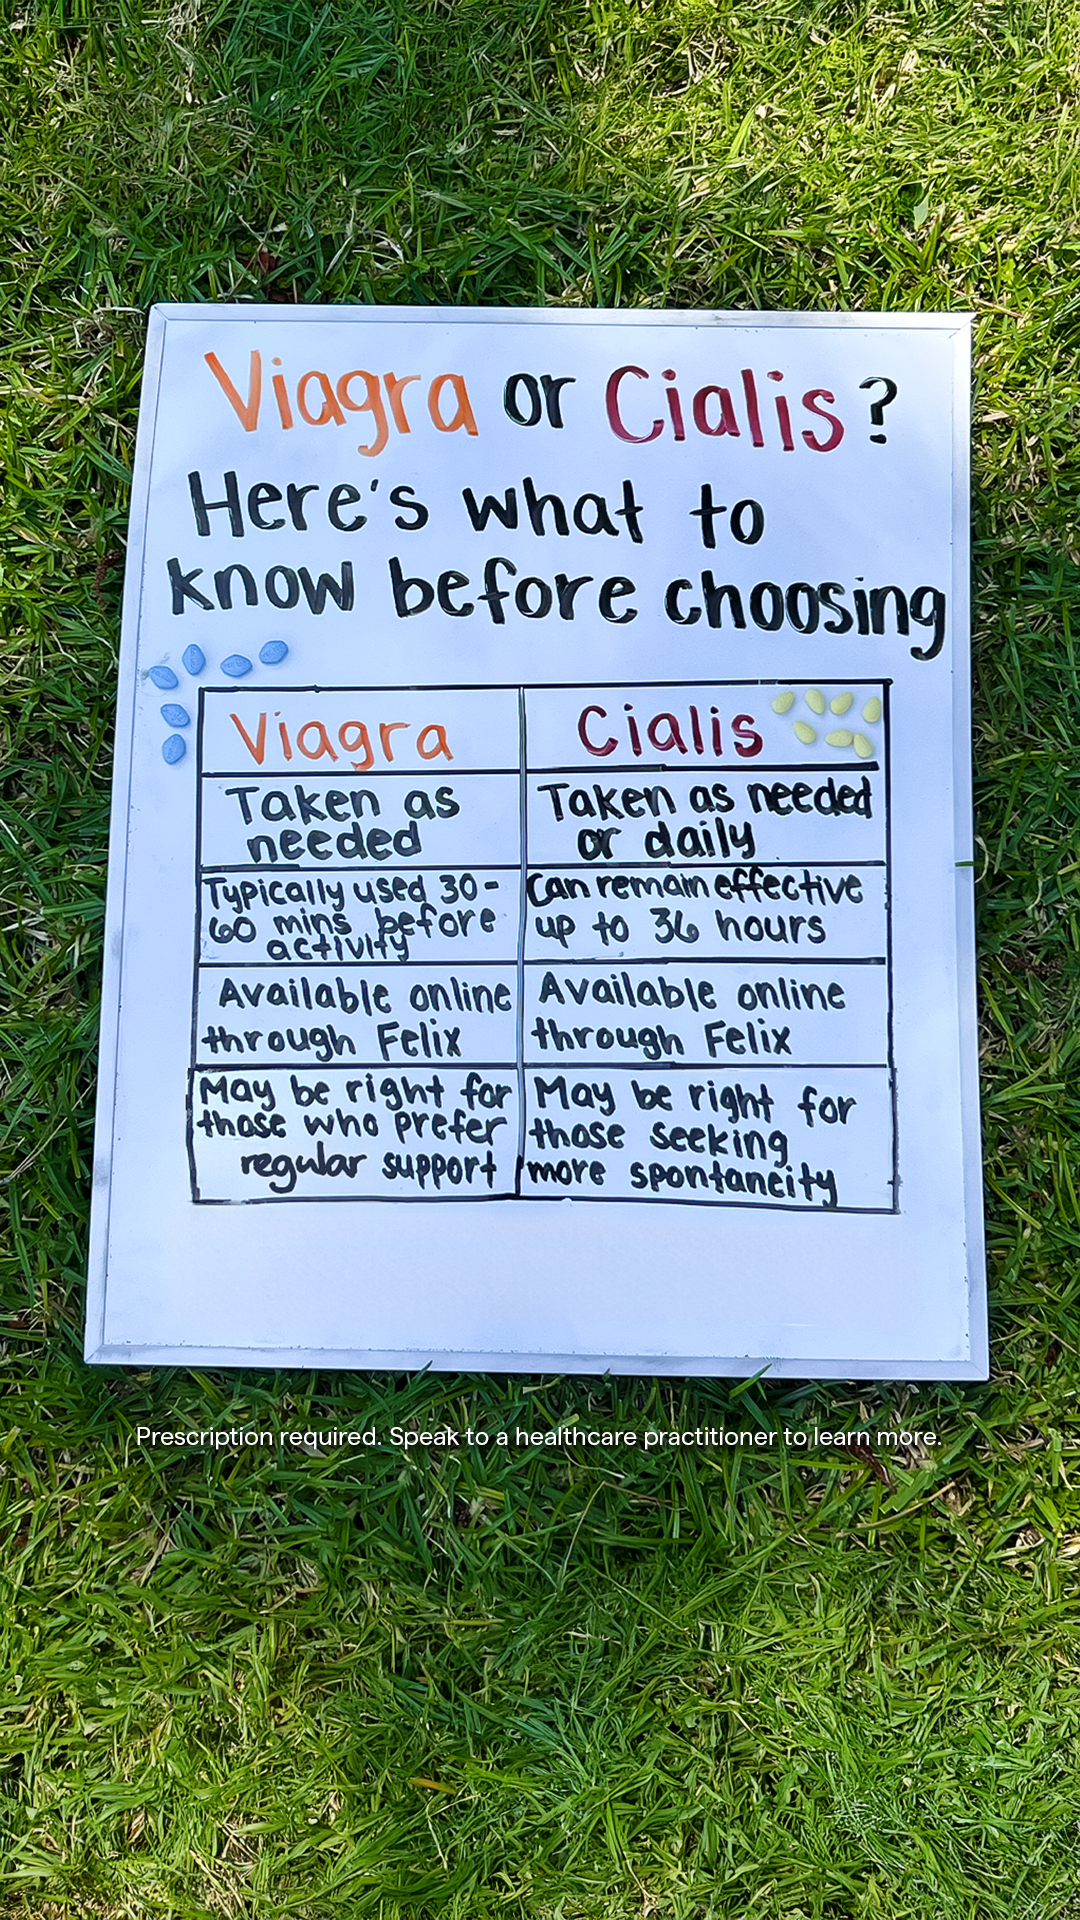 Viagra or Cialis?
Here's what to
know before choosing
Viagra
Cialis
Taken as
needed
Taken as needed
or daily
Typically used 30-
60 mins before
activity
Can remain effective
up to 36 hours
Available online
through Felix
Available online
through Felix
May be right for
those who prefer
regular support
May be right for
those seeking
more spontaneity
Prescription required. Speak to a healthcare practitioner to learn more.